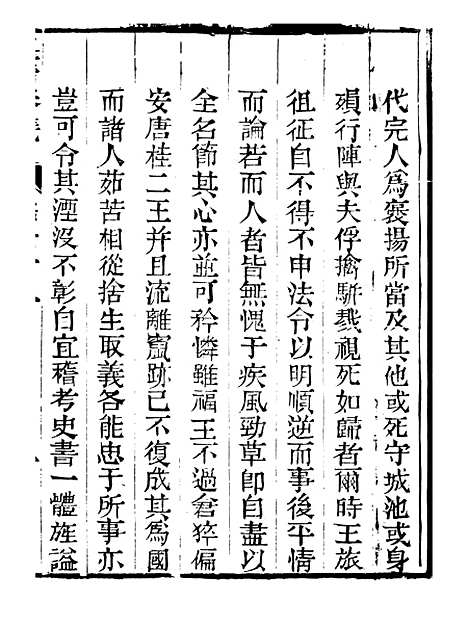 代完人爲褒揚所當及其他或死守城池或身
殞行陣與夫俘擒駢戮視死如歸者爾時王旅
徂征自不得不申法令以明順逆而事後平情
而論若而人者皆無愧于疾風勁草卽自盡以
全名節其心亦並可矜憐雖福王不過倉猝偏
安唐桂二王并且流離竄跡已不復成其爲國
而諸人茹苦相從捨生取義各能忠于所事亦
豈可令其湮沒不彰自宜稽考史書一體旌謚